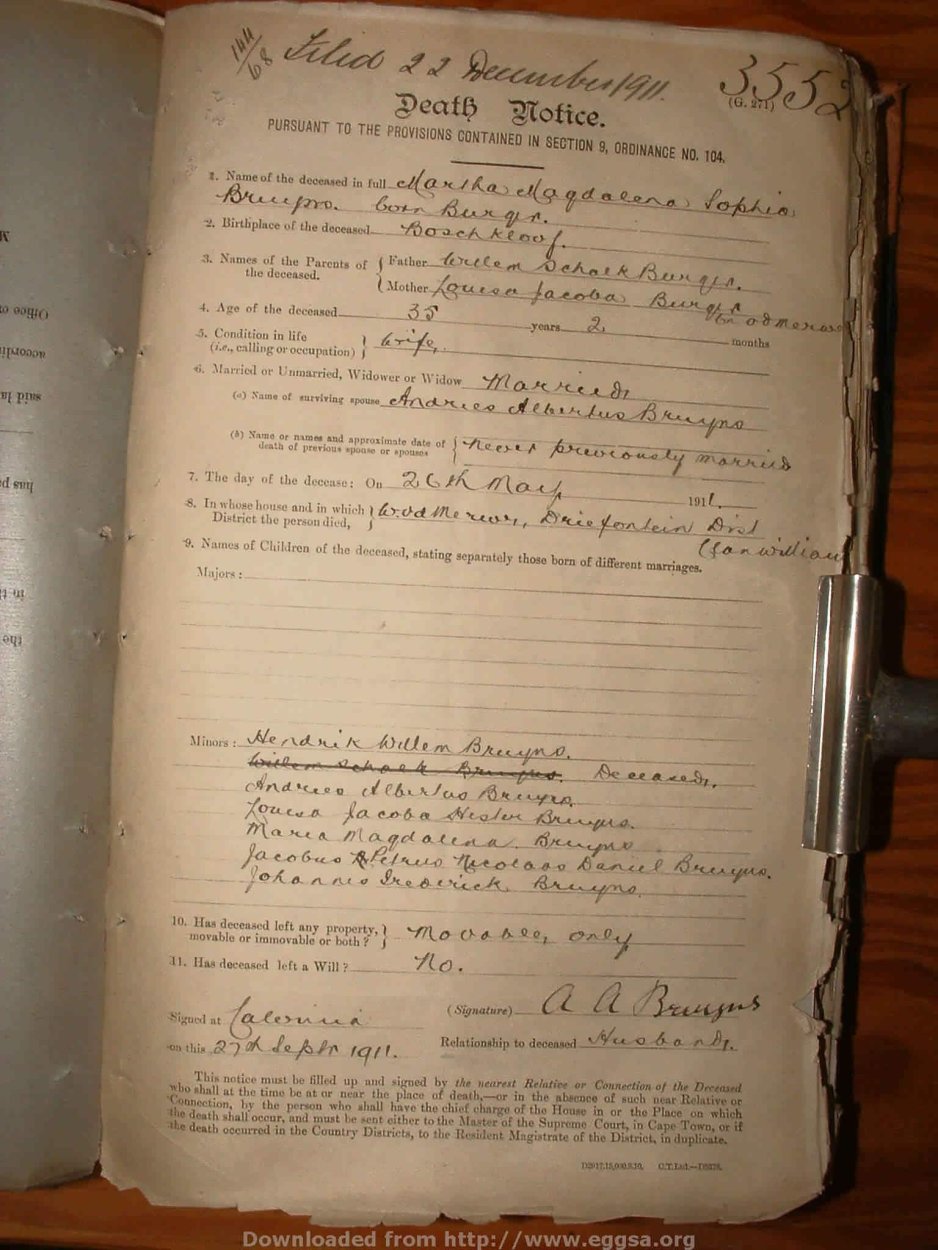 144/68 Filed 22 December 1911. 3552
(G. 271)
Death Notice.
PURSUANT TO THE PROVISIONS CONTAINED IN SECTION 9, ORDINANCE NO. 104.
1. Name of the deceased in full Martha Magdalena Sophia
Bruyns. born Burger.
2. Birthplace of the deceased Boschkloof.
3. Names of the Parents of the deceased. { Father Willem Schalk Burger.
{ Mother Louisa Jacoba Burger
4. Age of the deceased 35 years 2 months
5. Condition in life
(i.e., calling or occupation) } Wife.
6. Married or Unmarried, Widower or Widow Married
(a) Name of surviving spouse Andries Albertus Bruyns
(b) Name or names and approximate date of
death of previous spouse or spouses } never previously married
7. The day of the decease: On 26th May 1911.
8. In whose house and in which
District the person died, } Driefontein Dist
Clanwilliam
9. Names of Children of the deceased, stating separately those born of different marriages.
Majors:
Minors: Hendrik Willem Bruyns.
Willem Schalk Bruyns. Deceased.
Andries Albertus Bruyns.
Louisa Jacoba Hester Bruyns.
Maria Magdalena Bruyns
Jacobus Petrus Nicolaas Daniel Bruyns.
Johannes Frederick Bruyns.
10. Has deceased left any property,
movable or immovable or both? } Movable, only
11. Has deceased left a Will? No.
Signed at Calvinia (Signature) A A Bruyns
on this 27th Septr 1911. Relationship to deceased Husband.
This notice must be filled up and signed by the nearest Relative or Connection of the Deceased
who shall at the time be at or near the place of death,—or in the absence of such near Relative or
Connection, by the person who shall have the chief charge of the House in or the Place on which
the death shall occur, and must be sent either to the Master of the Supreme Court, in Cape Town, or if
the death occurred in the Country Districts, to the Resident Magistrate of the District, in duplicate.
Downloaded from http://www.eggsa.org